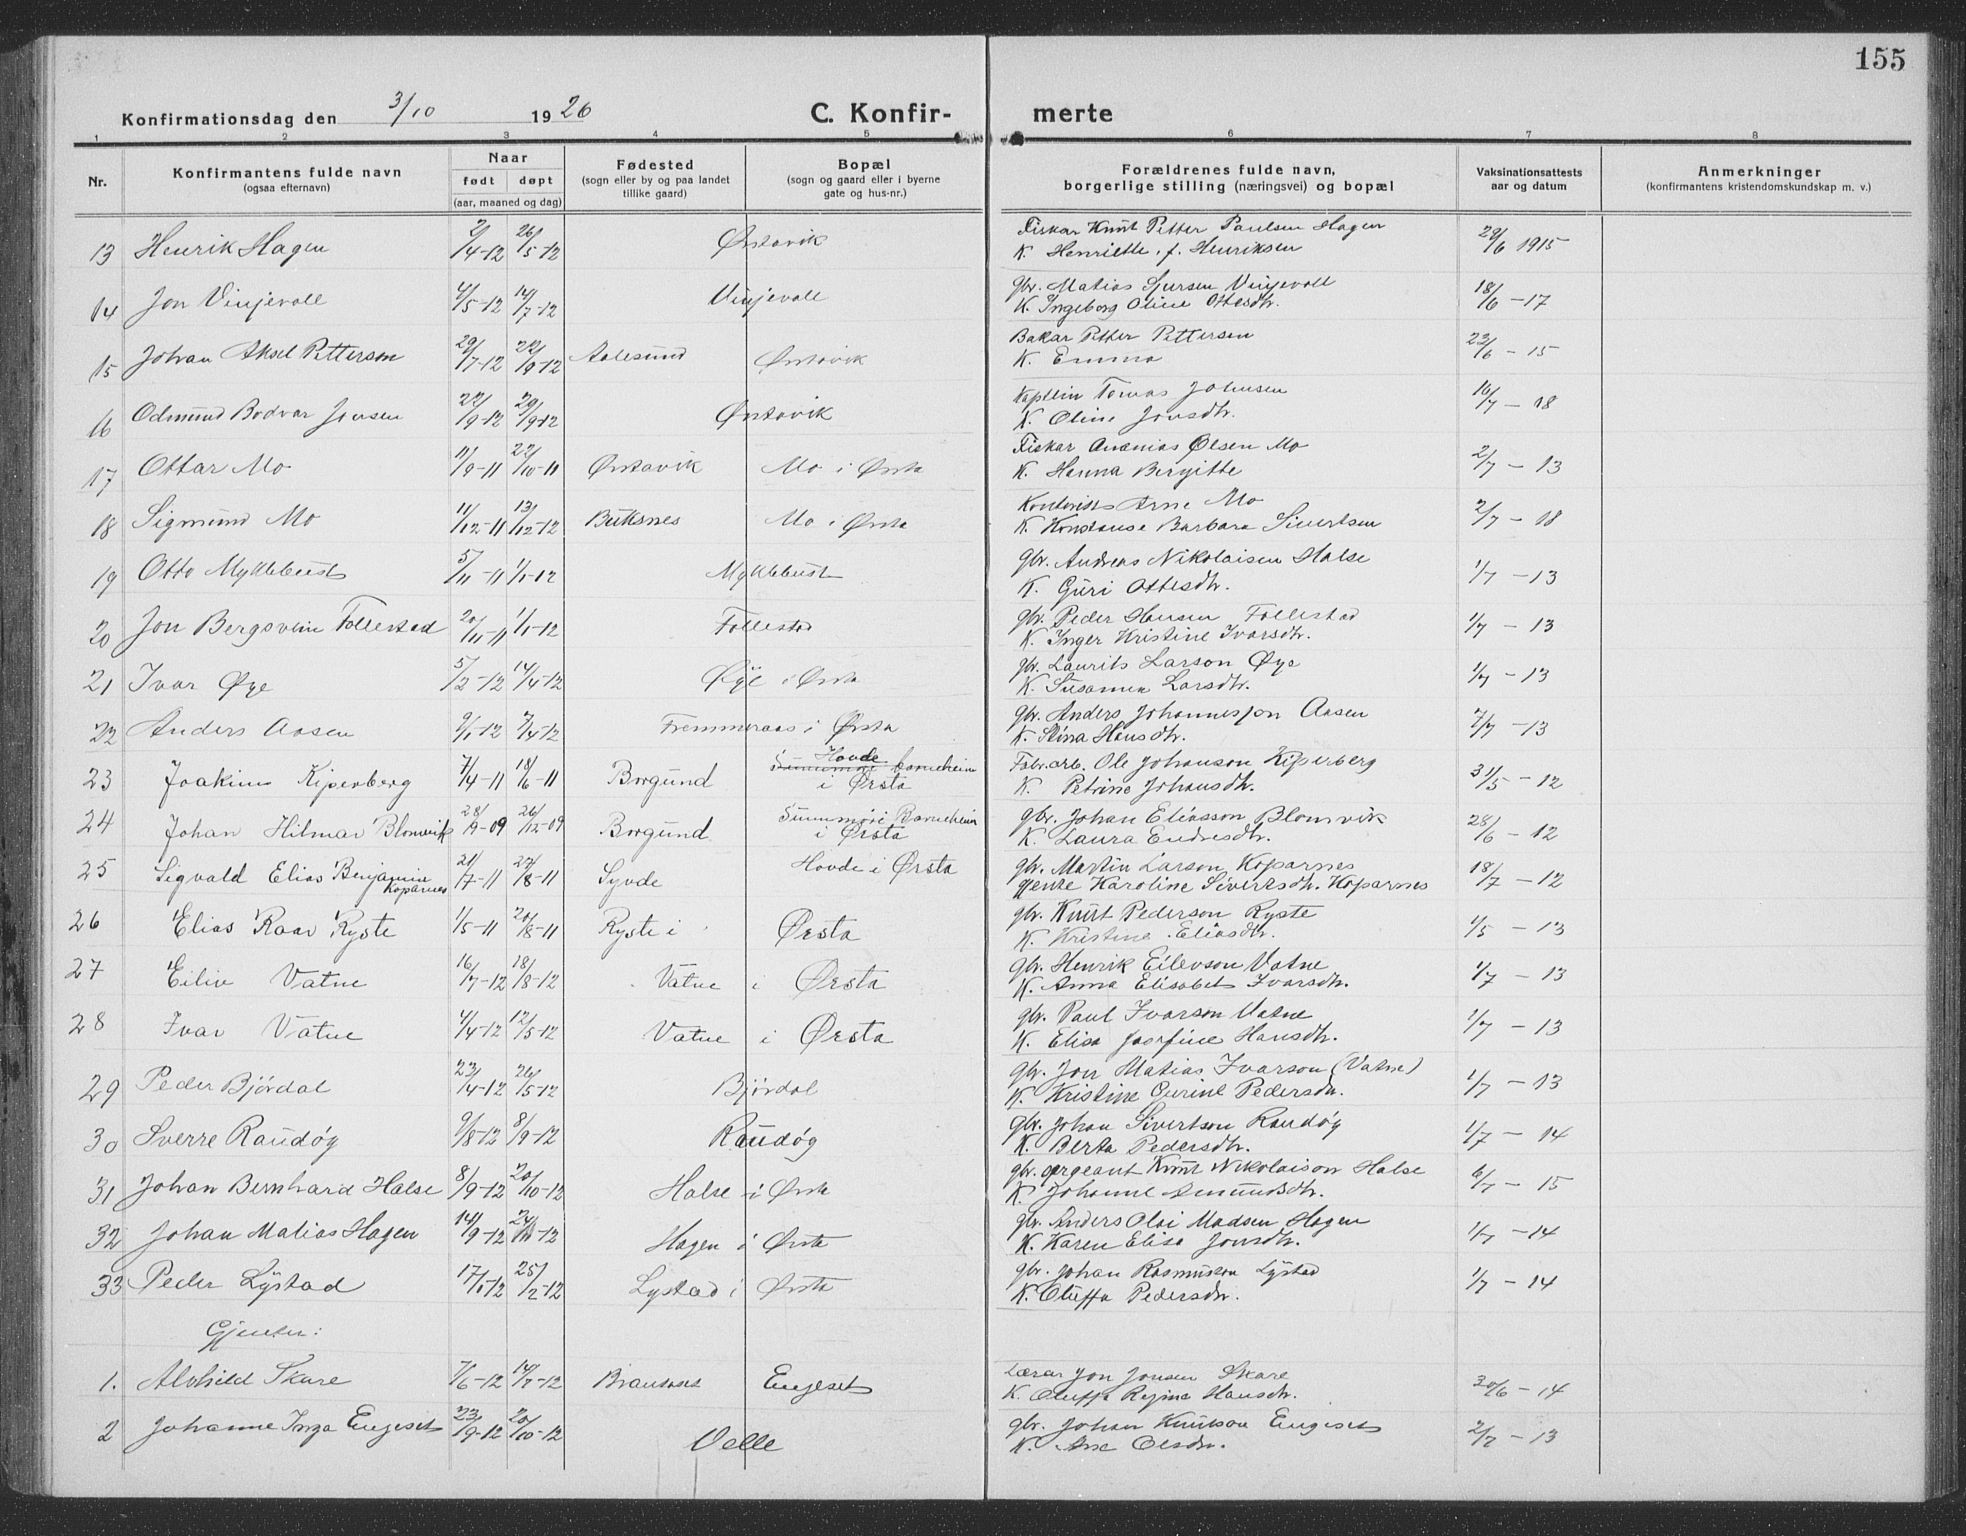 155
Konfirmationsdag den 3/10 1926 C. Konfir- merte
1 2 3 4 5 6 7 8
Nr.
Konfirmantens fulde navn
(ogsaa efternavn)
Naar
født døpt
(aar, maaned og dag)
Fødested
(sogn eller by og paa landet
tillike gaard)
Bopæl
(sogn og gaard eller i byerne
gate og hus-nr.)
Forældrenes fulde navn,
borgerlige stilling (næringsvei) og bopæl
Vaksinationsattests
aar og datum
Anmerkninger
(konfirmantens kristendomskundskap m. v.)
13 Henrik Hagen 2/4-12 26/5-12 Ørstavik Fiskar Knut Petter Paulsen Hagen 29/6 1915
K. Henriette, f. Henriksen
14 Jon Vinjevoll 4/5-12 14/7-12 Vinjevoll gbr. Matias Sjursen Vinjevoll 18/6 - 17
K. Ingeborg Oline Ottesdtr.
15 Johan Aksel Petterson 29/7-12 22/9-12 Aalesund Ørstavik Bakar Petter Pettersen 23/6 - 15
K. Emma
16 Odmund Bodvar Jensen 22/9-12 29/9-12 Ørstavik Kaptein Tomas Johnsen 10/7 - 18
K. Oline Jonsdtr.
17 Ottar Mo 11/9-11 22/10-11 Ørstavik Mo i Ørsta Fiskar Ananias Olsen Mo 2/7 - 13
K. Hanna Birgitte
18 Sigmund Mo 11/12-11 13/12-12 Buksnes Mo i Ørsta Arne Mo 2/7 - 18
K. Konstanse Barbara Sivertsen
19 Otto Myklebust 5/11-11 1/1-12 Myklebust gbr. Andreas Nikolaisen Halse 1/7 - 13
K. Guri Ottesdtr.
20 Jon Bergsvein Follestad 20/11-11 1/1-12 Follestad gbr. Peder Hansen Follestad 1/7 - 13
K. Inger Kristine Ivarsdtr.
21 Ivar Øye 5/2-12 14/4-12 Øye i Ørsta gbr. Laurits Larson Øye 1/7 - 13
K. Susanna Larsdtr.
22 Anders Aasen 9/1-12 7/4-12 Fremmeraas i Ørsta gbr. Anders Johannesson Aasen 7/7 - 13
K. Stina Hansdtr.
Hovde
23 Joakim Kiperberg 7/4-11 18/6-11 Borgund Sunnmøre barneheim Fabr.arb. Ole Johanson Kiperberg 31/5 - 12
i Ørsta K. Petrine Johansdtr.
24 Johan Hilmar Blomvik 28/9-09 26/12-09 Borgund Sunnmøri Barneheim gbr. Johan Eliasson Blomvik 28/6 - 12
i Ørsta K. Laura Endresdtr.
25 Sigvald Elias Benjamin 21/7-11 27/8-11 Syvde Hovde i Ørsta gbr. Martin Larson Koparnes 18/7 - 12
Koparnes gjente Karoline Sivertsdtr. Koparnes
26 Elias Roar Ryste 1/5-11 20/8-11 Ryste i Ørsta gbr. Knut Pederson Ryste 1/5 - 13
K. Kristine Eliasdtr.
27 Eiliv Vatne 16/7-12 18/8-12 Vatne i Ørsta gbr. Henrik Eilevson Vatne 1/7 - 13
K. Anna Elisabet Ivarsdtr.
28 Ivar Vatne 4/4-12 12/5-12 Vatne i Ørsta gbr. Paul Ivarson Vatne 1/7 - 13
K. Elisa Josefine Hansdtr.
29 Peder Bjørdal 23/4-12 26/5-12 Bjørdal gbr. Jon Matias Ivarson (Vatne) 1/7 - 13
K. Kristine Gurine Pedersdtr.
30 Sverre Raudøy 9/8-12 8/9-12 Raudøy gbr. Johan Sivertson Raudøy 1/7 - 14
K. Berta Pedersdtr.
31 Johan Bernhard Halse 8/9-12 20/10-12 Halse i Ørsta gbr. sergeant Knut Nikolaison Halse 6/7 - 15
K. Johanne Amundsdtr.
32 Johan Matias Hagen 14/9-12 Hagen i Ørsta gbr. Anders Olai Madsen Hagen 1/7 - 14
K. Karen Elisa Jonsdtr.
33 Peder Lystad 17/1-12 25/2-12 Lystad i Ørsta gbr. Johan Rasmusson Lystad 1/7 - 14
K. Oluffa Pedersdtr.
Gjenter:
1. Alvhild Skare 7/6-12 14/7-12 Engeset Lærar Jon Jonsen Skare 30/6 - 14
K. Oluffa Regina Hansdtr.
2 Johanne Inga Engeset 23/9-12 20/10-12 Velle gbr. Johan Knutson Engeset 2/7 - 13
K. Ane Olsdtr.